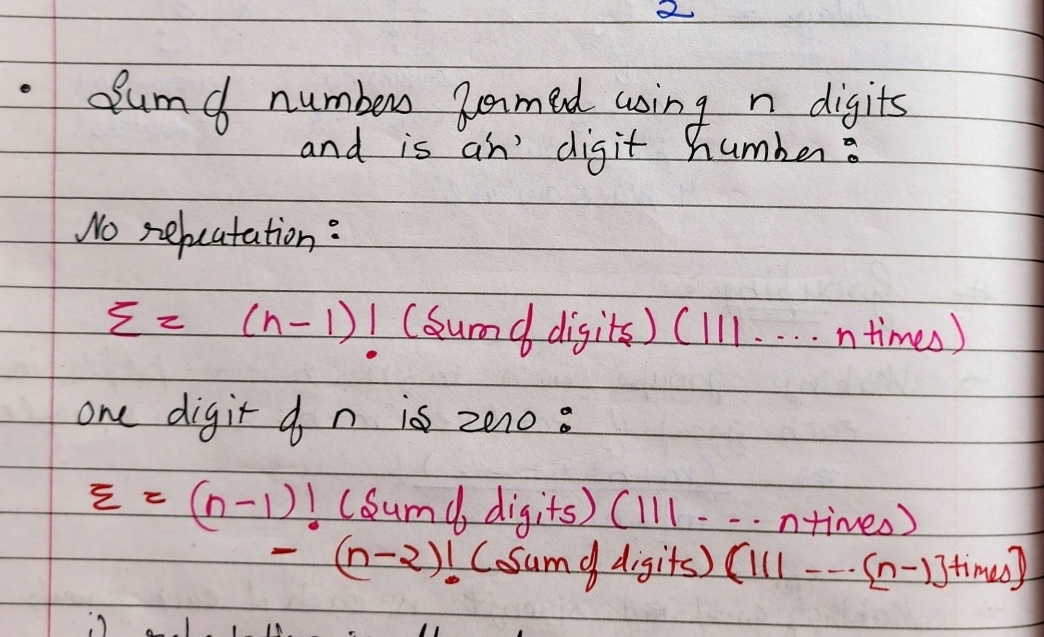 2
• Sum of numbers formed using n digits
and is a 'n' digit number:
No repeatation:
Σ = (n-1)! (Sum of digits) (111.... n times)
one digit of n is zero:
Σ = (n-1)! (Sum of digits) (111- - -- n times)
- (n-2)! (Sum of digits) (111 ---- (n-1) times)